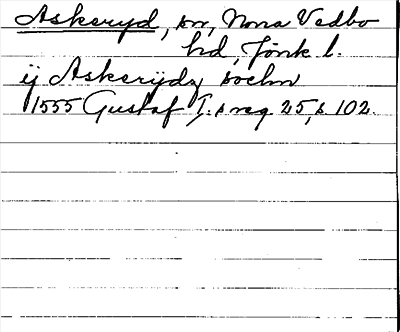 Askeryd, sn, Norra Vedbo
hd, Jönk l.
ij Askerijdz sochn
1555 Gustaf I:s reg 25, s. 102.